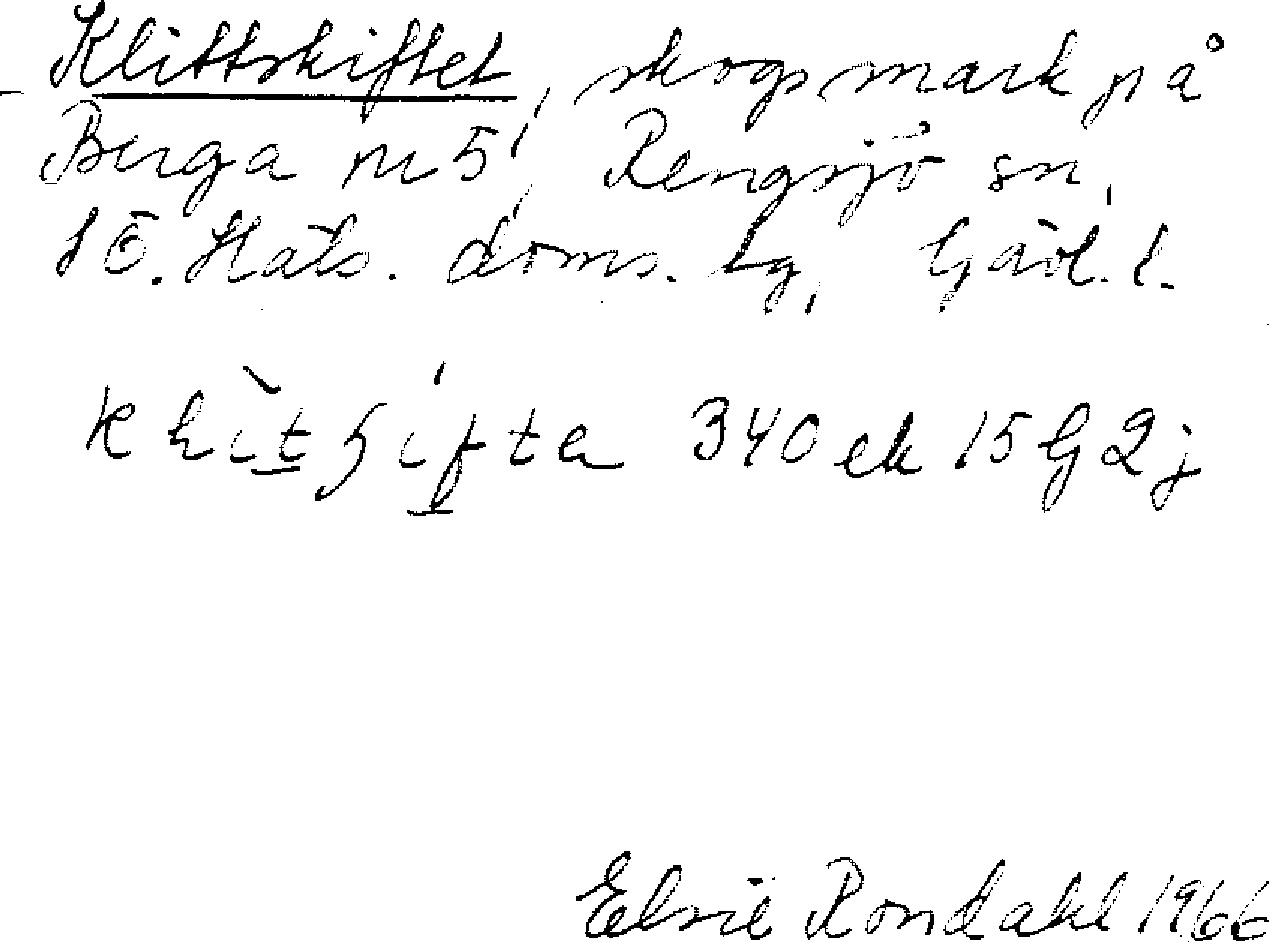 Klittskiftet, skogsmark på
Berga nr 5, Rengsjö sn,
SÖ. Häls. doms. lg, Gävl. l.
340 ek 15 G 2 j
Elsie Rondahl 1966